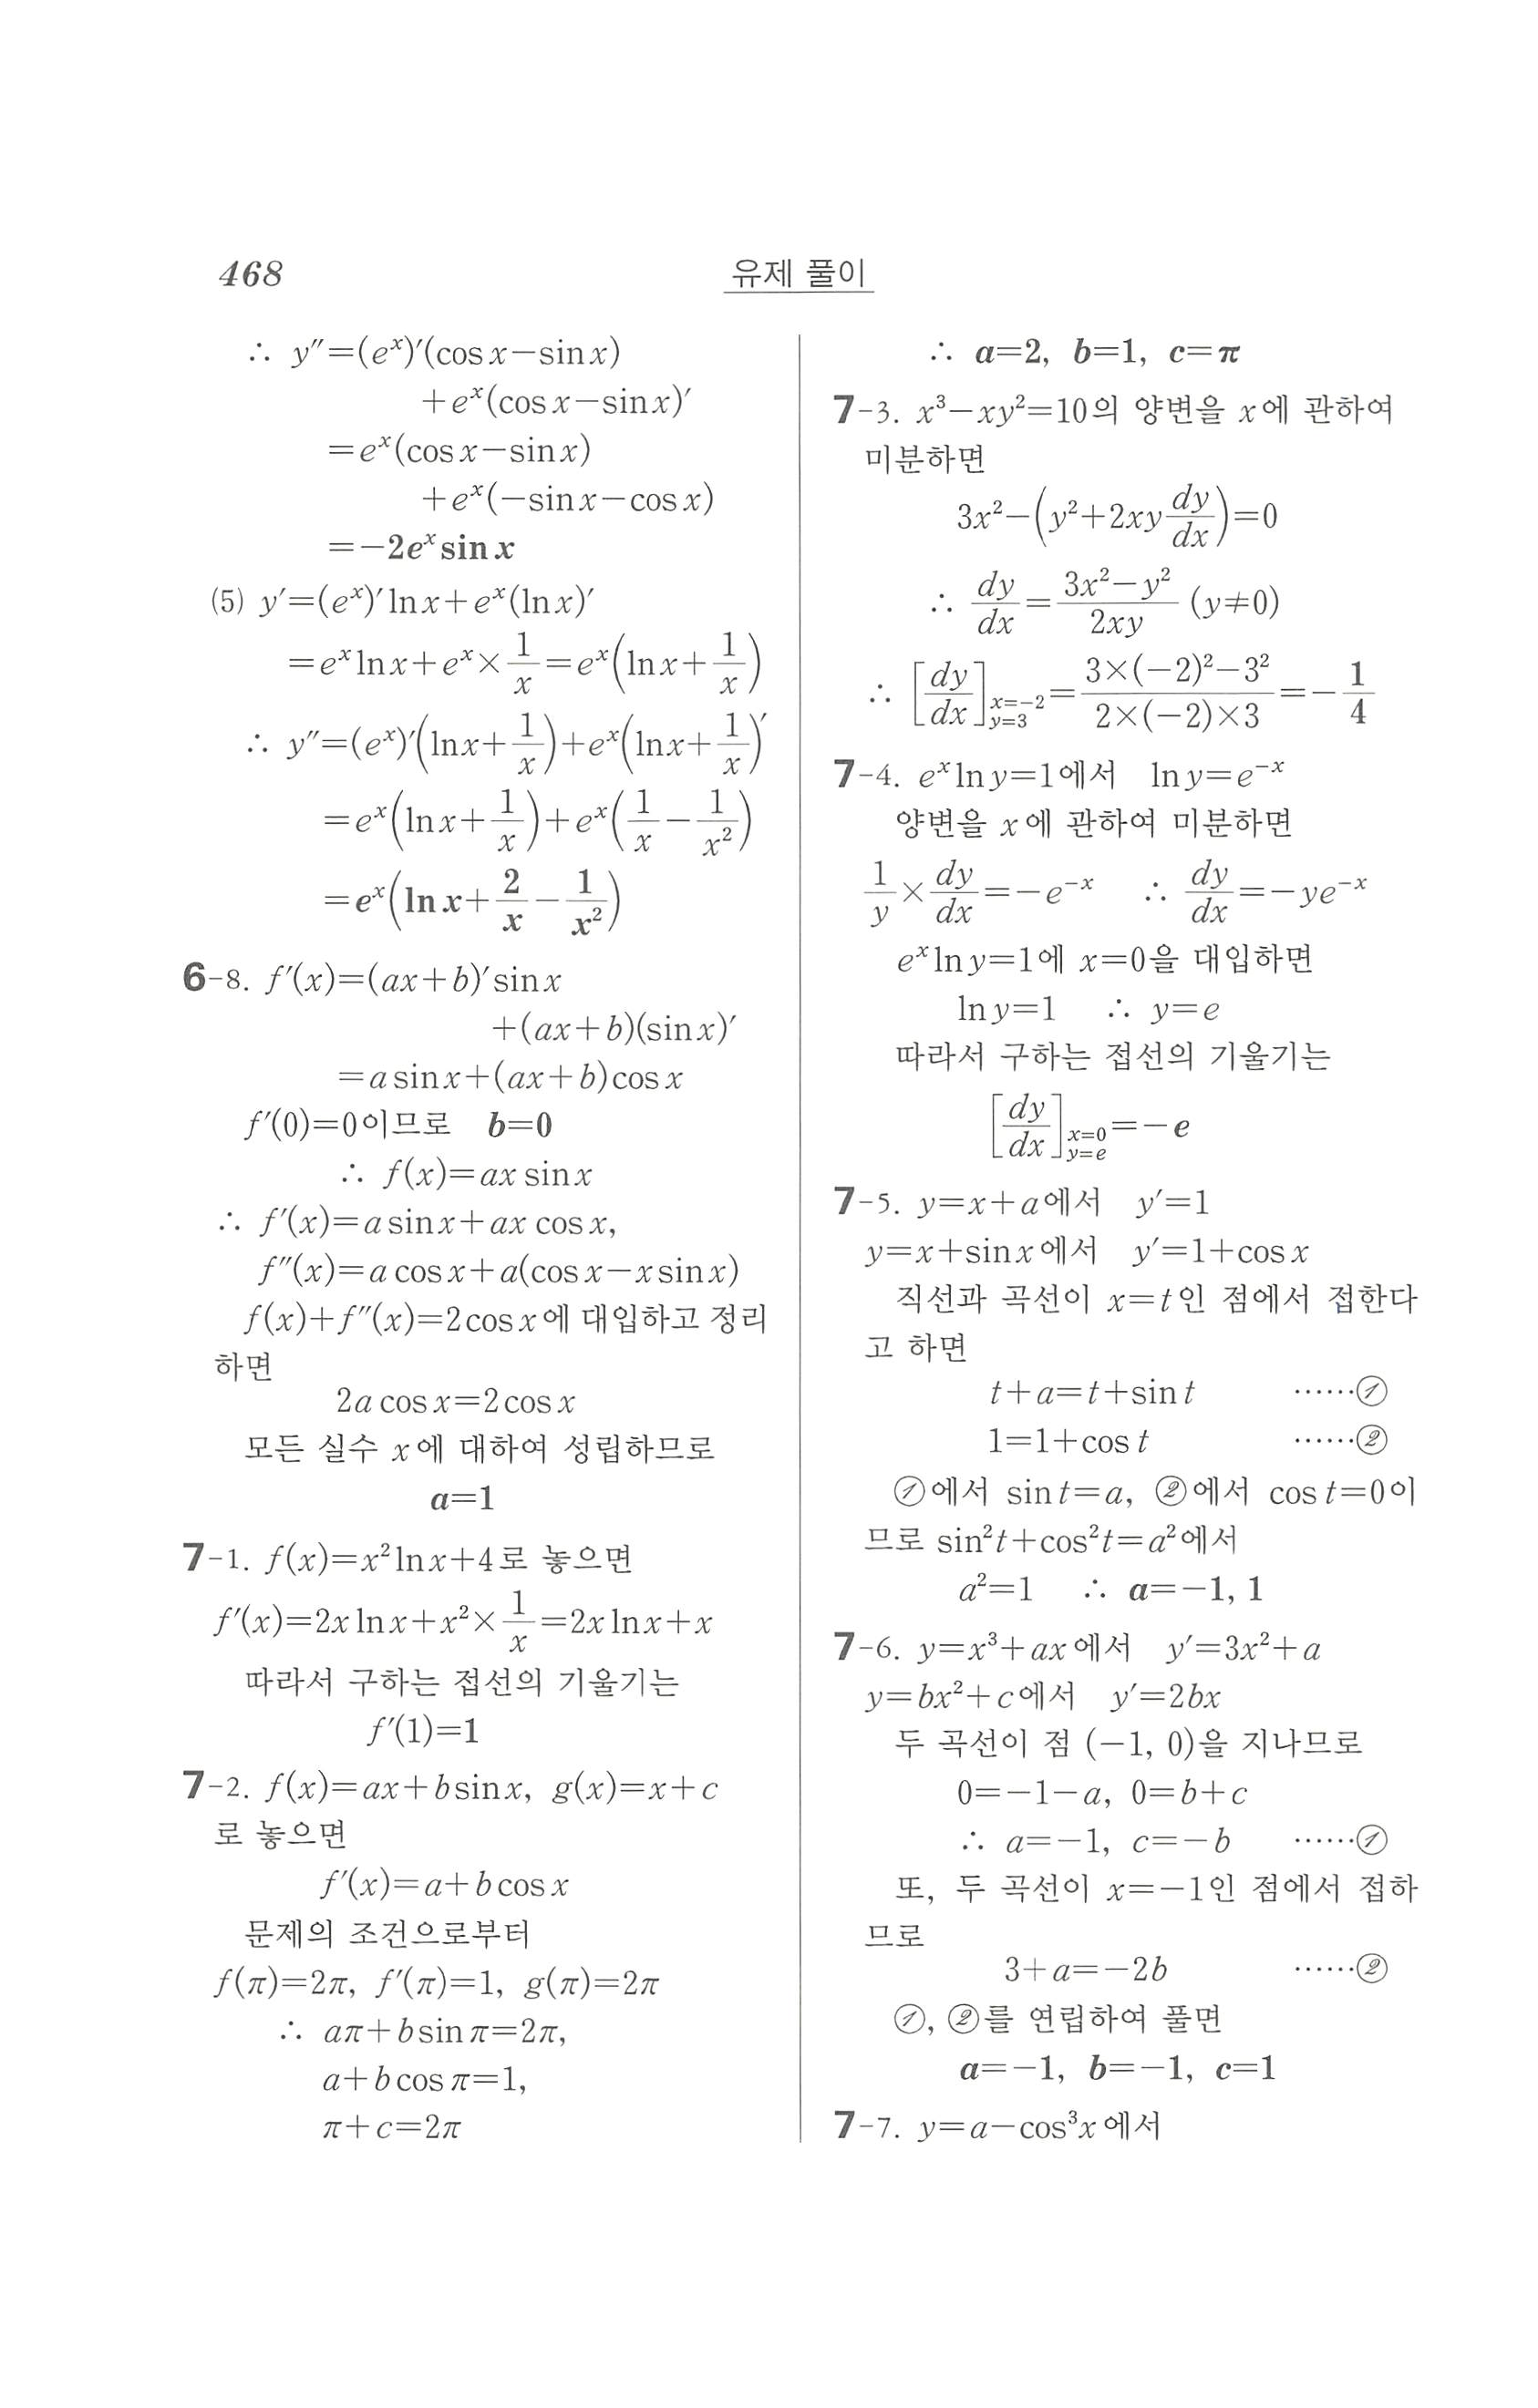 468
유제 풀이
∴ y″=(eˣ)′(cos x−sin x)
+eˣ(cos x−sin x)′
=eˣ(cos x−sin x)
+eˣ(−sin x−cos x)
=−2eˣ sin x
(5) y′=(eˣ)′ln x+eˣ(ln x)′
=eˣ ln x+eˣ×1/x=eˣ(ln x+1/x)
∴ y″=(eˣ)′(ln x+1/x)+eˣ(ln x+1/x)′
=eˣ(ln x+1/x)+eˣ(1/x−1/x²)
=eˣ(ln x+2/x−1/x²)
6-8. f′(x)=(ax+b)′sin x
+(ax+b)(sin x)′
=a sin x+(ax+b)cos x
f′(0)=0이므로 b=0
∴ f(x)=ax sin x
∴ f′(x)=a sin x+ax cos x,
f″(x)=a cos x+a(cos x−x sin x)
f(x)+f″(x)=2cos x에 대입하고 정리
하면
2a cos x=2cos x
모든 실수 x에 대하여 성립하므로
a=1
7-1. f(x)=x² ln x+4로 놓으면
f′(x)=2x ln x+x²×1/x=2x ln x+x
따라서 구하는 접선의 기울기는
f′(1)=1
7-2. f(x)=ax+b sin x, g(x)=x+c
로 놓으면
f′(x)=a+b cos x
문제의 조건으로부터
f(π)=2π, f′(π)=1, g(π)=2π
∴ aπ+b sin π=2π,
a+b cos π=1,
π+c=2π
∴ a=2, b=1, c=π
7-3. x³−xy²=10의 양변을 x에 관하여
미분하면
3x²−(y²+2xy dy/dx)=0
∴ dy/dx=(3x²−y²)/2xy (y≠0)
∴ [dy/dx]x=−2, y=3=(3×(−2)²−3²)/(2×(−2)×3)=−1/4
7-4. eˣ ln y=1에서 ln y=e⁻ˣ
양변을 x에 관하여 미분하면
1/y×dy/dx=−e⁻ˣ ∴ dy/dx=−ye⁻ˣ
eˣ ln y=1에 x=0을 대입하면
ln y=1 ∴ y=e
따라서 구하는 접선의 기울기는
[dy/dx]x=0, y=e=−e
7-5. y=x+a에서 y′=1
y=x+sin x에서 y′=1+cos x
직선과 곡선이 x=t인 점에서 접한다
고 하면
t+a=t+sin t ……①
1=1+cos t ……②
①에서 sin t=a, ②에서 cos t=0이
므로 sin²t+cos²t=a²에서
a²=1 ∴ a=−1, 1
7-6. y=x³+ax에서 y′=3x²+a
y=bx²+c에서 y′=2bx
두 곡선이 점 (−1, 0)을 지나므로
0=−1−a, 0=b+c
∴ a=−1, c=−b ……①
또, 두 곡선이 x=−1인 점에서 접하
므로
3+a=−2b ……②
①, ②를 연립하여 풀면
a=−1, b=−1, c=1
7-7. y=a−cos³x에서